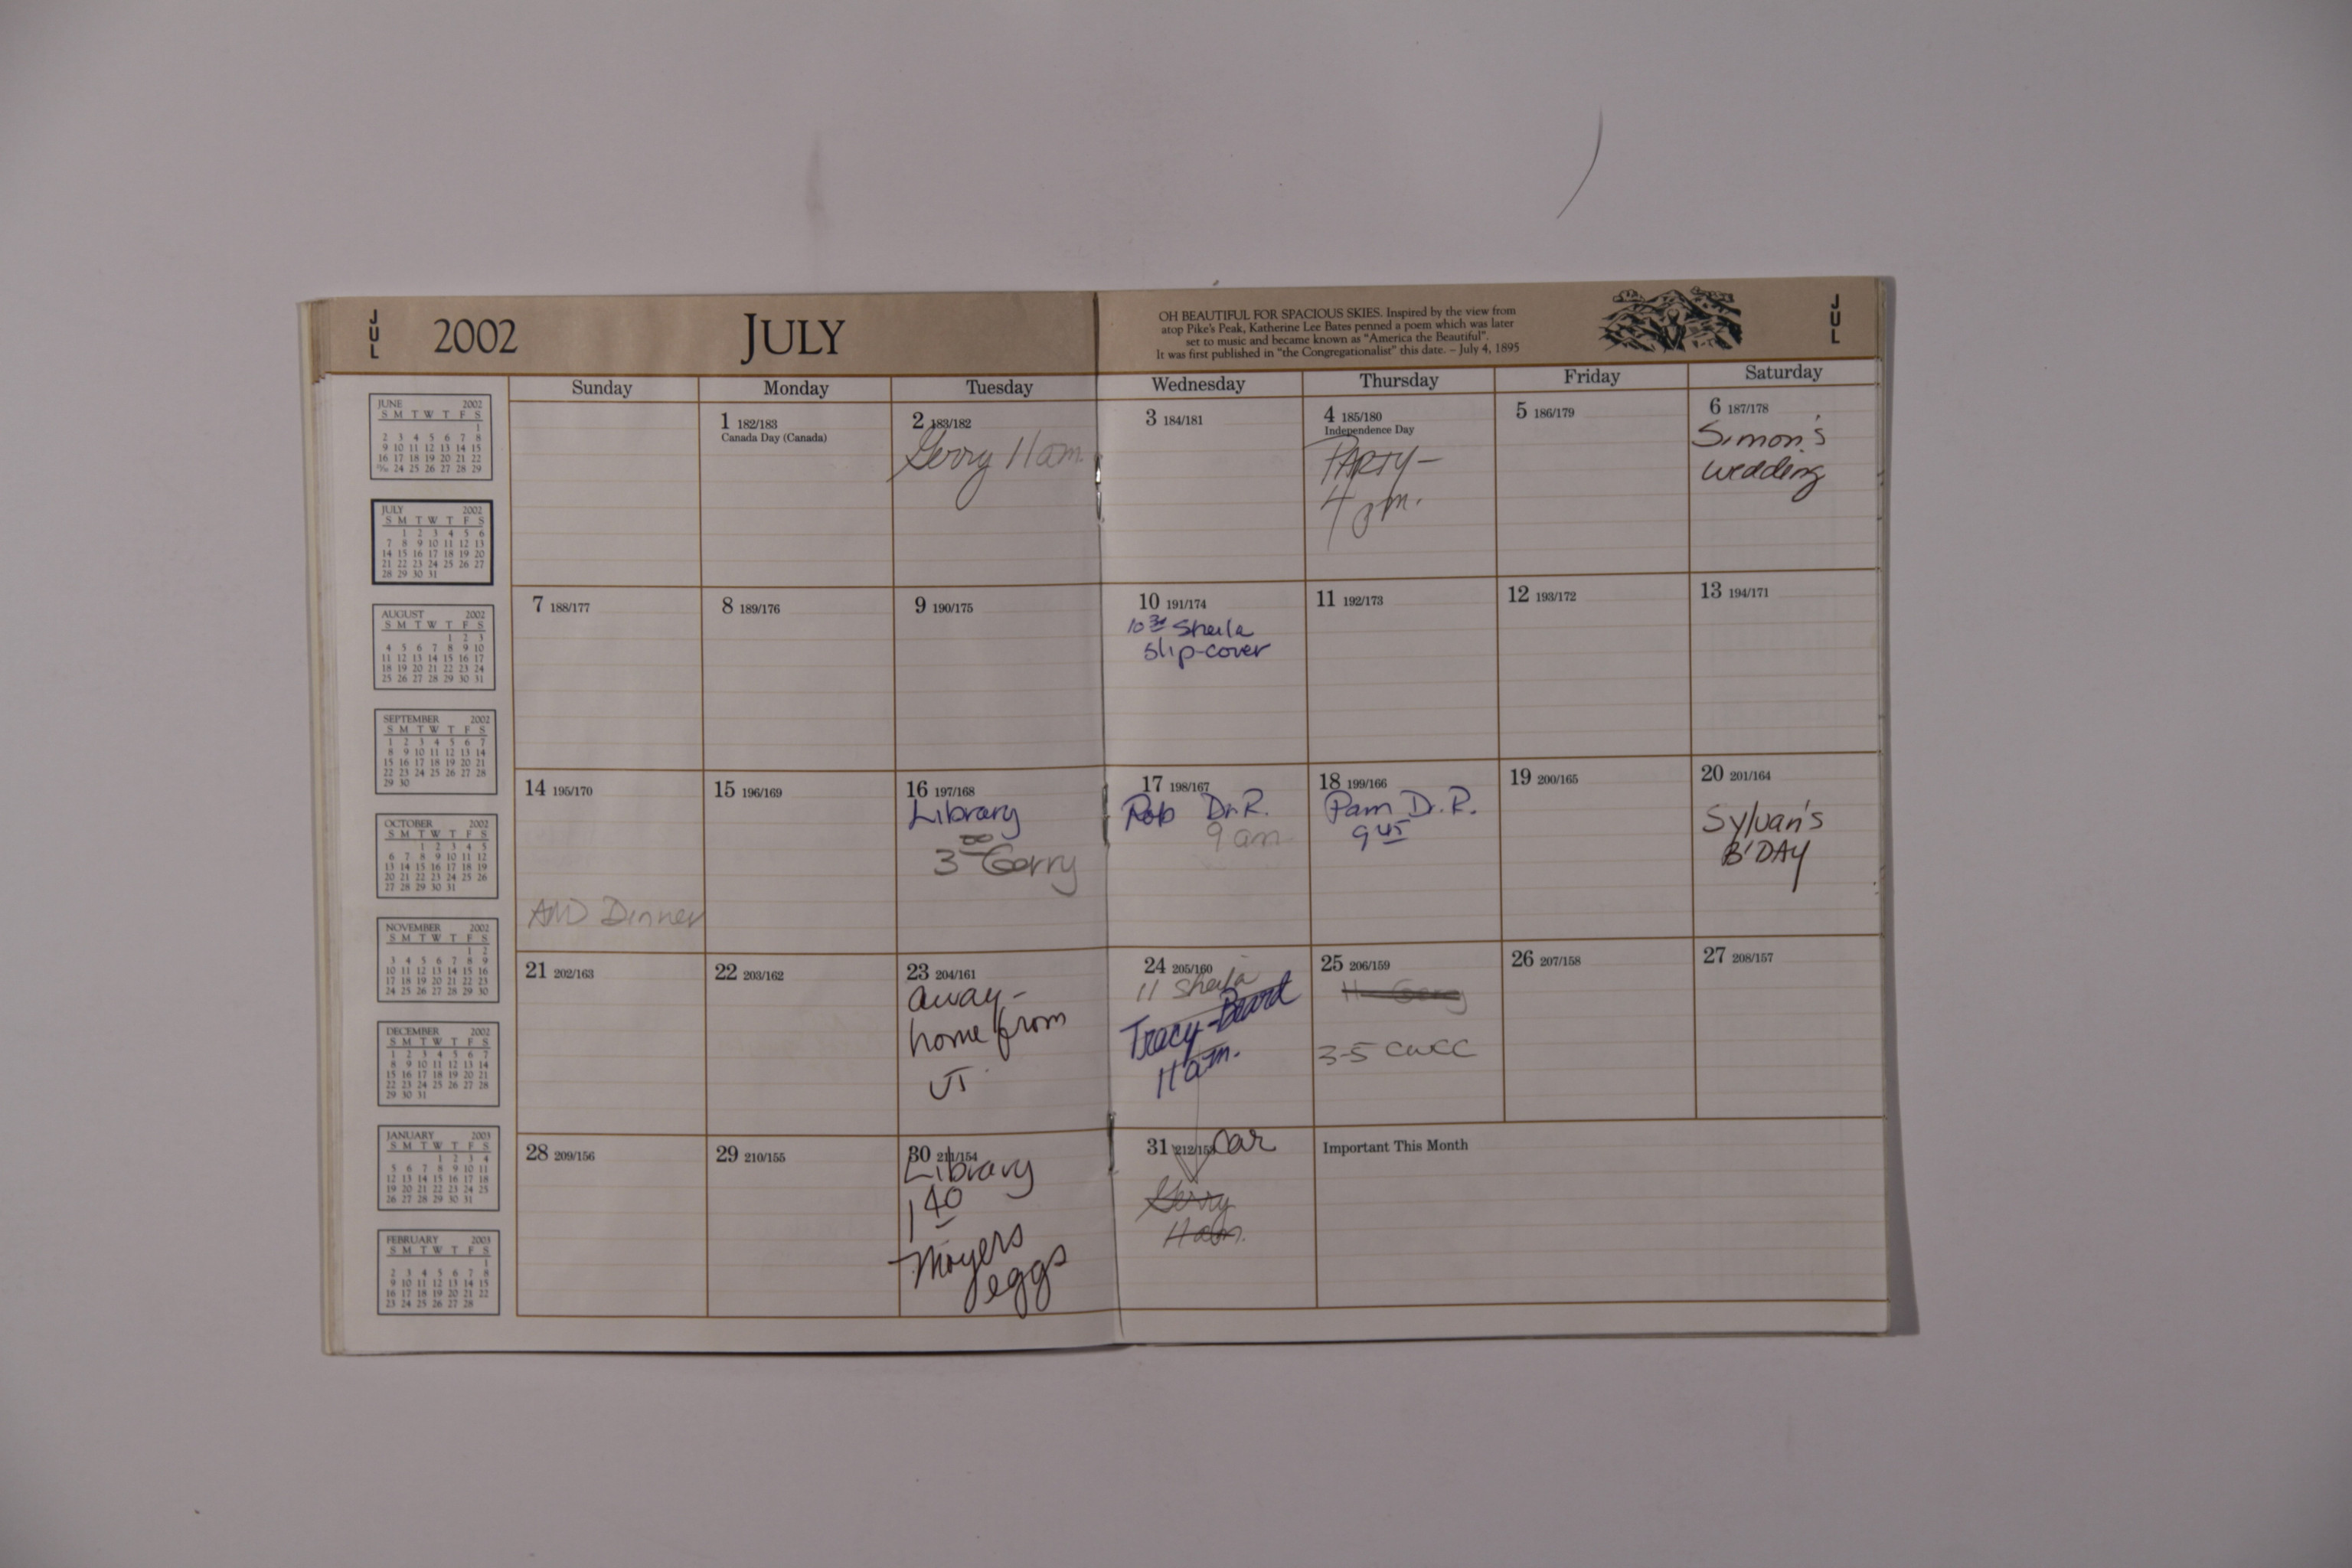 JUL
2002
JULY
OH BEAUTIFUL FOR SPACIOUS SKIES. Inspired by the view from
atop Pike's Peak, Katherine Lee Bates penned a poem which was later
set to music and became known as "America the Beautiful".
It was first published in "the Congregationalist" this date. – July 4, 1895
JUL
Sunday Monday Tuesday Wednesday Thursday Friday Saturday
1 182/183
Canada Day (Canada)
2 183/182
Gerry 11am.
3 184/181
4 185/180
Independence Day
PARTY-
4 pm.
5 186/179
6 187/178
Simon's
wedding
7 188/177
8 189/176
9 190/175
10 191/174
10 30 Sheila
slip-cover
11 192/173
12 193/172
13 194/171
14 195/170
AMD Dinner
15 196/169
16 197/168
Library
3 00 Gerry
17 198/167
Rob Dr. R.
9 am
18 199/166
Pam Dr. R.
9 45
19 200/165
20 201/164
Sylvan's
B'DAY
21 202/163
22 203/162
23 204/161
away-
home from
VT
24 205/160
11 Sheila
Tracy-Beard
11 am.
25 206/159
11 Gerry
3-5 CWCC
26 207/158
27 208/157
28 209/156
29 210/155
30 211/154
Library
1 40
Moyers
eggs
31 212/153
car
Gerry
11am.
Important This Month
JUNE 2002
S M T W T F S
1
2 3 4 5 6 7 8
9 10 11 12 13 14 15
16 17 18 19 20 21 22
24 25 26 27 28 29
JULY 2002
S M T W T F S
1 2 3 4 5 6
7 8 9 10 11 12 13
14 15 16 17 18 19 20
21 22 23 24 25 26 27
28 29 30 31
AUGUST 2002
S M T W T F S
1 2 3
4 5 6 7 8 9 10
11 12 13 14 15 16 17
18 19 20 21 22 23 24
25 26 27 28 29 30 31
SEPTEMBER 2002
S M T W T F S
1 2 3 4 5 6 7
8 9 10 11 12 13 14
15 16 17 18 19 20 21
22 23 24 25 26 27 28
29 30
OCTOBER 2002
S M T W T F S
1 2 3 4 5
6 7 8 9 10 11 12
13 14 15 16 17 18 19
20 21 22 23 24 25 26
27 28 29 30 31
NOVEMBER 2002
S M T W T F S
1 2
3 4 5 6 7 8 9
10 11 12 13 14 15 16
17 18 19 20 21 22 23
24 25 26 27 28 29 30
DECEMBER 2002
S M T W T F S
1 2 3 4 5 6 7
8 9 10 11 12 13 14
15 16 17 18 19 20 21
22 23 24 25 26 27 28
29 30 31
JANUARY 2003
S M T W T F S
1 2 3 4
5 6 7 8 9 10 11
12 13 14 15 16 17 18
19 20 21 22 23 24 25
26 27 28 29 30 31
FEBRUARY 2003
S M T W T F S
1
2 3 4 5 6 7 8
9 10 11 12 13 14 15
16 17 18 19 20 21 22
23 24 25 26 27 28